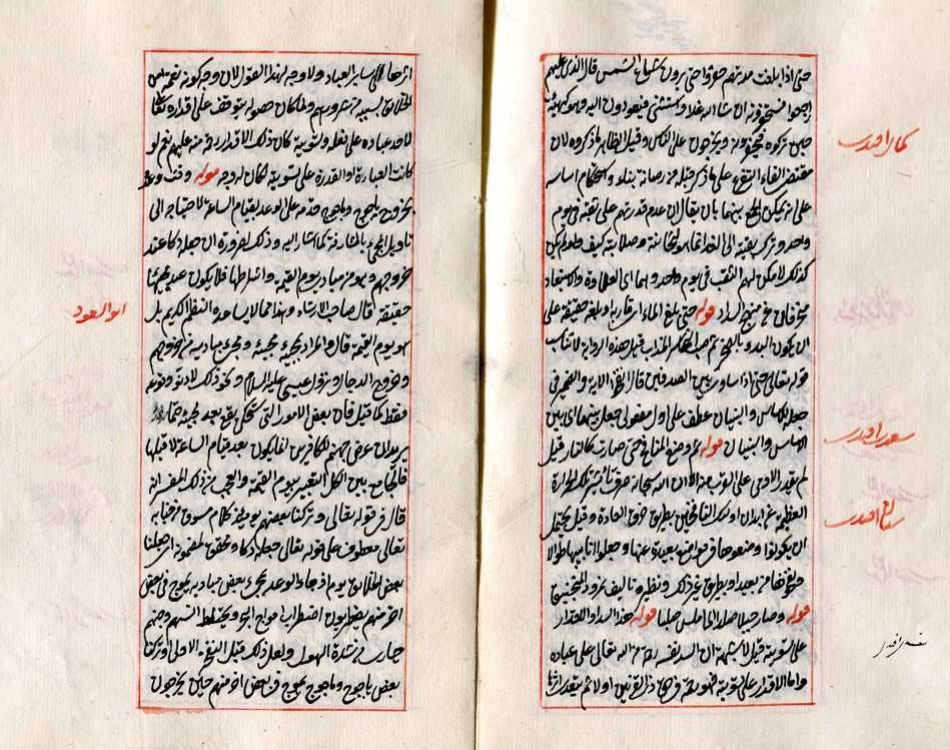 حتى اذا بلغت مدتهم حفروا حتى يرون شعاع الشمس قال الذى عليهم
ارجعوا فستحفرونه ان شاء الله غدا ويستثنى فيعودون اليه وهو كهيئته
حين تركوه فيحفرونه ويخرجون على الناس وقيل الظاهر ما ذكروه لان
على ما ذكر قبله من رصانة بنائه واستحكام اساسه
على انه يمكن الجمع بينهما بان يقال ان عدم قدرتهم على نقبه في يوم
واحد وترك بقيته الى الغد انما هو لثخانته وصلابته كيف ولو لم يكن
كذلك لامكن لهم النقب في يوم واحد وهما اى العلاوة والاستبعاد
منحرفان عن منهج السداد قوله حتى بلغ الماء اى قاربه او بلغه حقيقة على
ان يكون البدء ثم صب النحاس المذاب قيل هذه الرواية لا تناسب
قوله تعالى حتى اذا ساوى بين الصدفين قال انفخوا الاية والضمير في
جعله للاساس والبنيان عطف على اول مفعولى جعل بينهما اى بين
الاساس والبنيان قوله ثم وضع المنافخ حتى صارت كالنار قيل
لم يقدر الادمى على القرب منه الا ان الله سبحانه صرف تاثير تلك الحرارة
العظيمة عن ابدان اولئك النافخين بطريق خرق العادة وقيل يحتمل
ان يكونوا وضعوها في مواضع بعيدة عنها وجعلوا انابيبها طوالا
من بعيد او بطريق غير ذلك ونظيره المنجنيق
قوله وصار جبلا صلدا اى املس صلبا قوله هذا السد او الاقدار
على تسويته قيل لا شبهة ان السد نفسه رحمة من الله تعالى على عباده
واما الاقدار على تسويته فهو نعمة في حق ذى القرنين اولا ثم يتعدى اثرها
سعدى افندى
اثرها الى سائر العباد ولا وجه لهذا القول لان وجه كونه نعمة على
الخلائق بسببه من شرورهم ولما كان حصوله يتوقف على اقداره تعالى
لاحد عباده على فعله وتسويته كان ذلك الاقدار رحمة منه عليهم نعم لو
كانت العبارة او القدرة على تسويته لكان له وجه قوله وقت وعده
بخروج ياجوج وماجوج قدمه على الوعد بقيام الساعة لاحتياجه الى
تاويل المجئ بالمشارفة كما اشار اليه وذلك لضرورة ان جعله دكا عند
خروجهم وهو من مبادى يوم القيمة واشراطها فلا يكون عند مجيئها
حقيقة قال صاحب الارشاد وهذا مما لا يساعده النظم الكريم بل
هو يوم القيمة قال والمراد بمجيئه مجيئه ومجئ مباديه من خروجهم
وخروج الدجال ونزول عيسى عليه السلام ونحو ذلك لا دنو وقوعه
فقط كما قيل فان بعض الامور التى ستحكى يقع بعد مجيئه حتما
يريد ان عرض جهنم للكافرين انما يكون بعد قيام الساعة لا قبلها
فالجامع بين الكل التعبير بيوم القيمة والعجب من ذلك المفسر انه
قال في قوله تعالى وتركنا بعضهم يومئذ كلام مسوق من جنابه
تعالى معطوف على قوله تعالى جعله دكا ومحقق لمضمونه اى جعلنا
بعض الخلائق يوم اذ جاء الوعد بمجئ بعض مباديه يموج في بعض
اخر منهم يضطربون اضطراب امواج البحر ويختلط انسهم وجنهم
حيارى من شدة الهول ولعل ذلك قبل النفخة الاولى او تركنا
بعض ياجوج وماجوج يموج في بعض اخر منهم حين يخرجون
ابو السعود